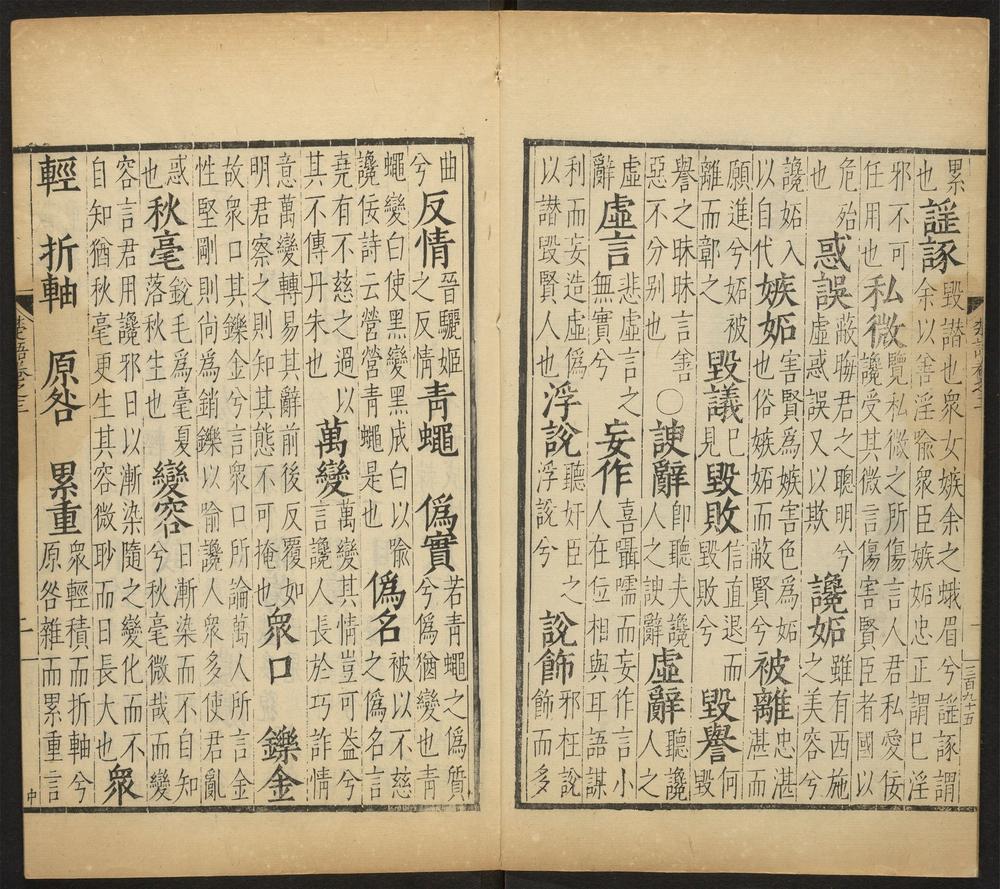 累也謡諑毀譖也衆女嫉余之蛾眉兮謡諑謂余以善淫喻衆臣嫉妬忠正謂巳淫
邪不可任用也私微覽私微之所傷言人君私愛佞讒受其微言傷害賢臣者國以
危殆也惑誤蔽聨君之聰明兮虛惑誤又以欺讒妬雖有西施之美容兮
讒妬入以自代嫉妬害賢爲嫉害色爲妬也俗嫉妬而蔽賢兮被離忠湛湛而
願進兮妬被離而鄣之毀議巳見毀敗信直退而毀敗兮毀譽何毀
譽之昧昧言善惡不分别也〇諛辭卽聽夫讒人之諛辭虛辭聽讒人之
虛辭虛言悲虛言之無實兮妄作喜囁嚅而妄作言小人在位相與耳語謀
利而妄造虛僞以譖毀賢人也浮說聽奸臣之浮說兮說飾邪枉說飾而多
三百九十五
曲兮反情晉驪姬之反情靑蠅 僞實若青蠅之僞質兮僞猶變也青
蠅變白使黑變黑成白以喻讒佞詩云營營青蠅是也僞名被以不慈之僞名言
堯有不慈之過以其不傳丹朱也萬變萬變其情豈可葢兮言讒人長於巧詐情
意萬變轉易其辭前後反覆如明君察之則知其態不可掩也衆口 鑠金
故衆口其鑠金兮言衆口所論萬人所言金性堅剛則尚爲銷鑠以喻讒人衆多使君亂
惑也秋毫銳毛爲毫夏落秋生也變容日漸染而不自知兮秋毫微哉而變
容言君用讒邪日以漸染隨之變化而不自知猶秋毫更生其容微眇而日長大也衆
輕 折軸 原咎 累重衆輕積而折軸兮原咎雜而累重言
二
中